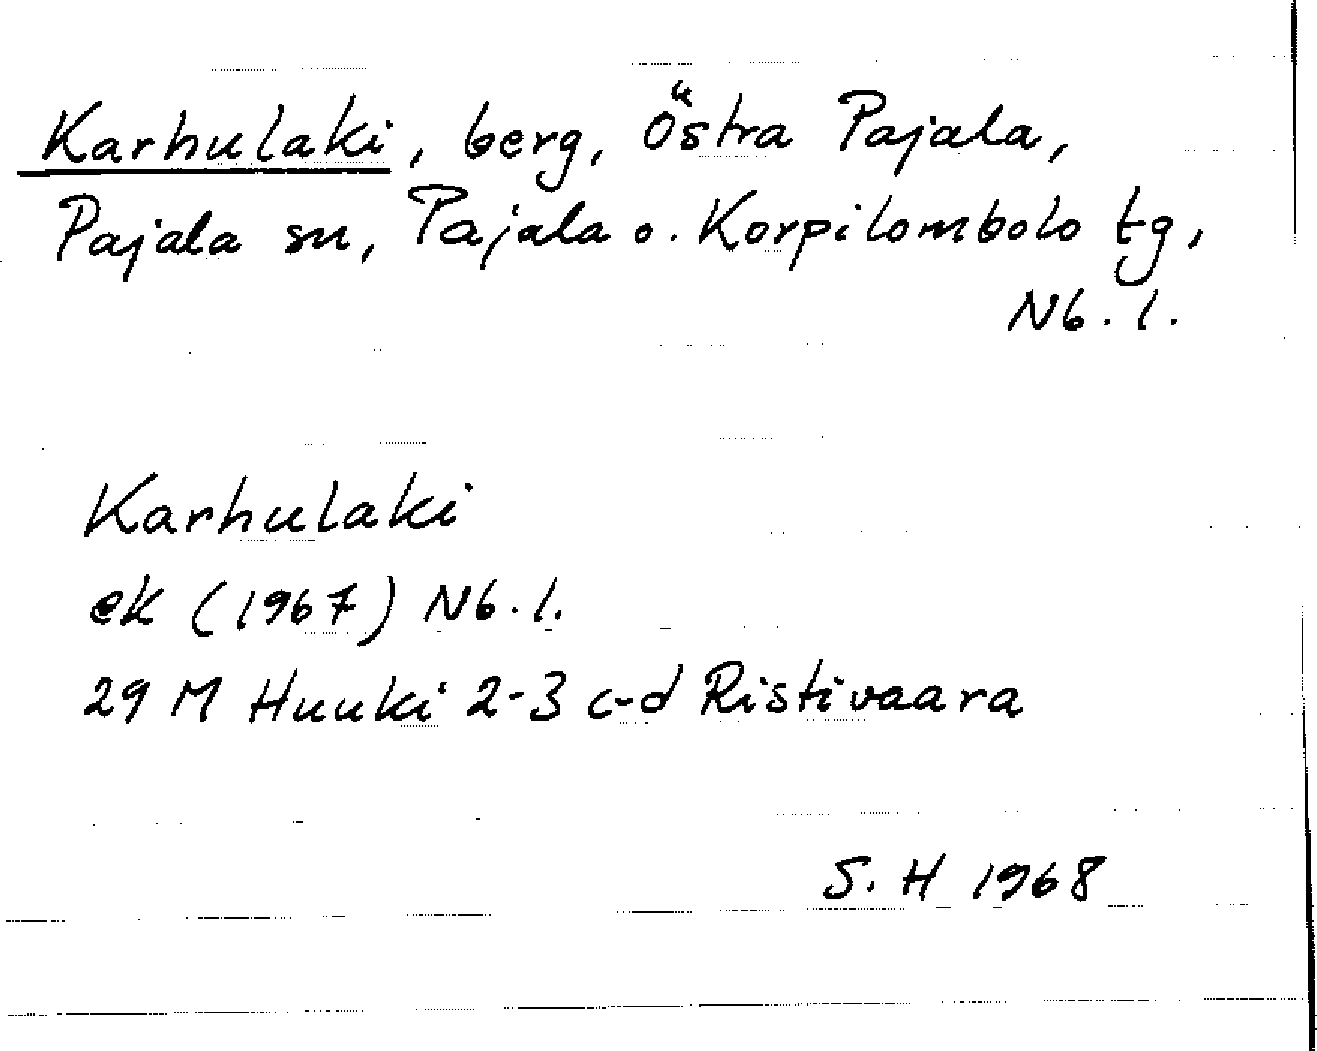 Karhulaki, berg, Östra Pajala,
Pajala sn, Pajala o. Korpilombolo tg,
Nb. l.
Karhulaki
ek (1967) Nb. l.
29 M Huuki 2-3 c-d Ristivaara
S. H 1968